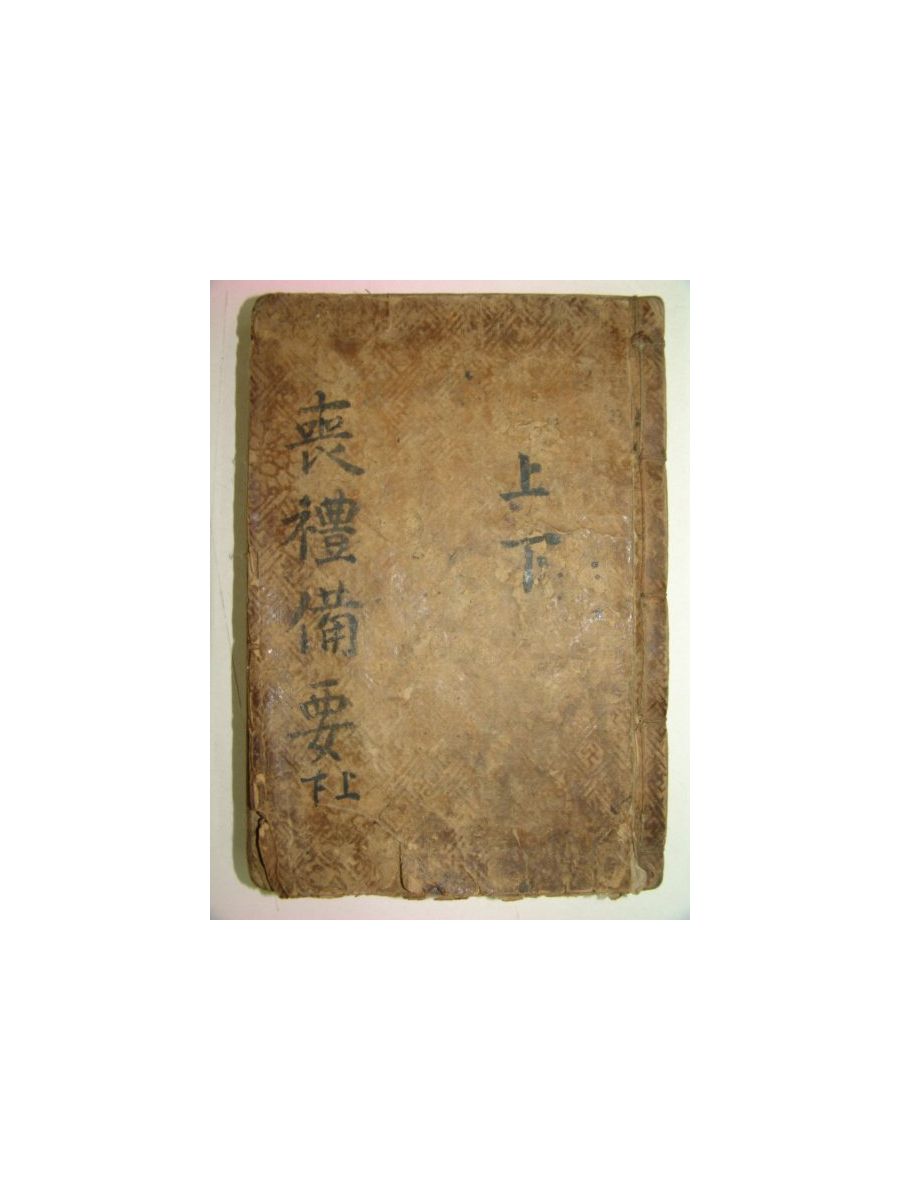 上下
喪禮備要
上下